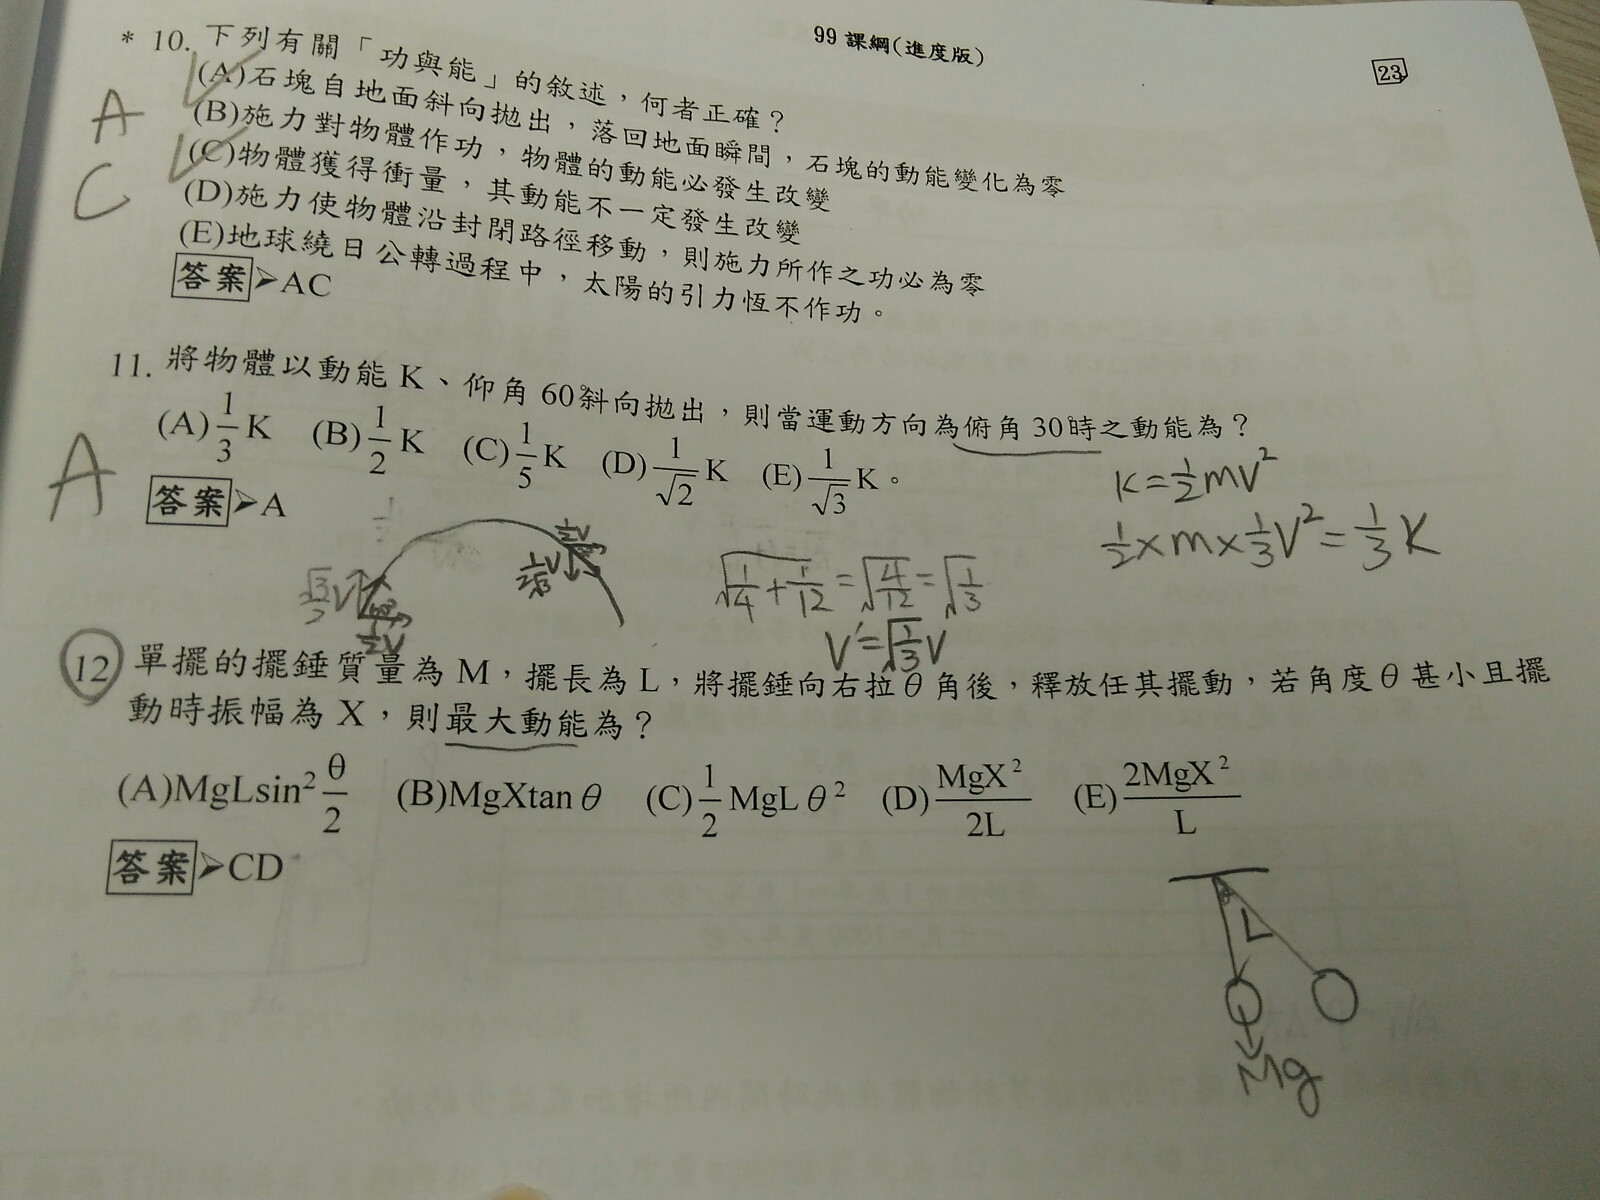 99課綱(進度版)
23
* 10. 下列有關「功與能」的敘述，何者正確？
(A)石塊自地面斜向拋出，落回地面瞬間，石塊的動能變化為零
(B)施力對物體作功，物體的動能必發生改變
A
(C)物體獲得衝量，其動能不一定發生改變
C
(D)施力使物體沿封閉路徑移動，則施力所作之功必為零
(E)地球繞日公轉過程中，太陽的引力恆不作功。
答案➢AC
11. 將物體以動能K、仰角60°斜向拋出，則當運動方向為俯角30°時之動能為？
(A) 1/3 K (B) 1/2 K (C) 1/5 K (D) 1/√2 K (E) 1/√3 K。
A
答案➢A
K=½mV²
½×m×⅓V²=⅓K
√3/2 V
½V
½V
√(1/4+1/12)=√(4/12)=√(1/3)
V'=√(1/3)V
12 單擺的擺錘質量為M，擺長為L，將擺錘向右拉θ角後，釋放任其擺動，若角度θ甚小且擺
動時振幅為X，則最大動能為？
(A)MgLsin² θ/2 (B)MgXtanθ (C) 1/2 MgLθ² (D) MgX²/2L (E) 2MgX²/L
答案➢CD
L
Mg